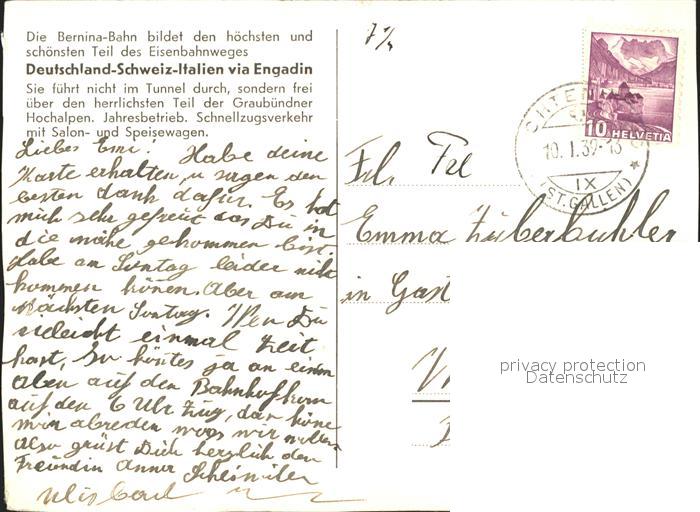 Die Bernina-Bahn bildet den höchsten und
schönsten Teil des Eisenbahnweges
Deutschland-Schweiz-Italien via Engadin
Sie führt nicht im Tunnel durch, sondern frei
über den herrlichsten Teil der Graubündner
Hochalpen. Jahresbetrieb. Schnellzugsverkehr
mit Salon- und Speisewagen.
Liebes Emi! Habe deine
Karte erhalten, u sagen den
besten dank dafür. Es hat
mich sehr gefreut das Du in
die nähe gekommen bist.
Habe am Suntag leider nicht
kommen könen. Aber am
Nächsten Suntag. Wen Du
vieleicht einmal Zeit
hast, So köntes ja an einem
Aben auf den Bahnhof kom
auf den 6 Uhr Zug, dan köne
mir abreden waas wir wollen
Also grüst Dich herzlich den
Freundin Anna
Frl.
Emma Zuberbuhler
in Gast
10 HELVETIA
10. I. 39-13
IX
(ST. GALLEN)
privacy protection
Datenschutz